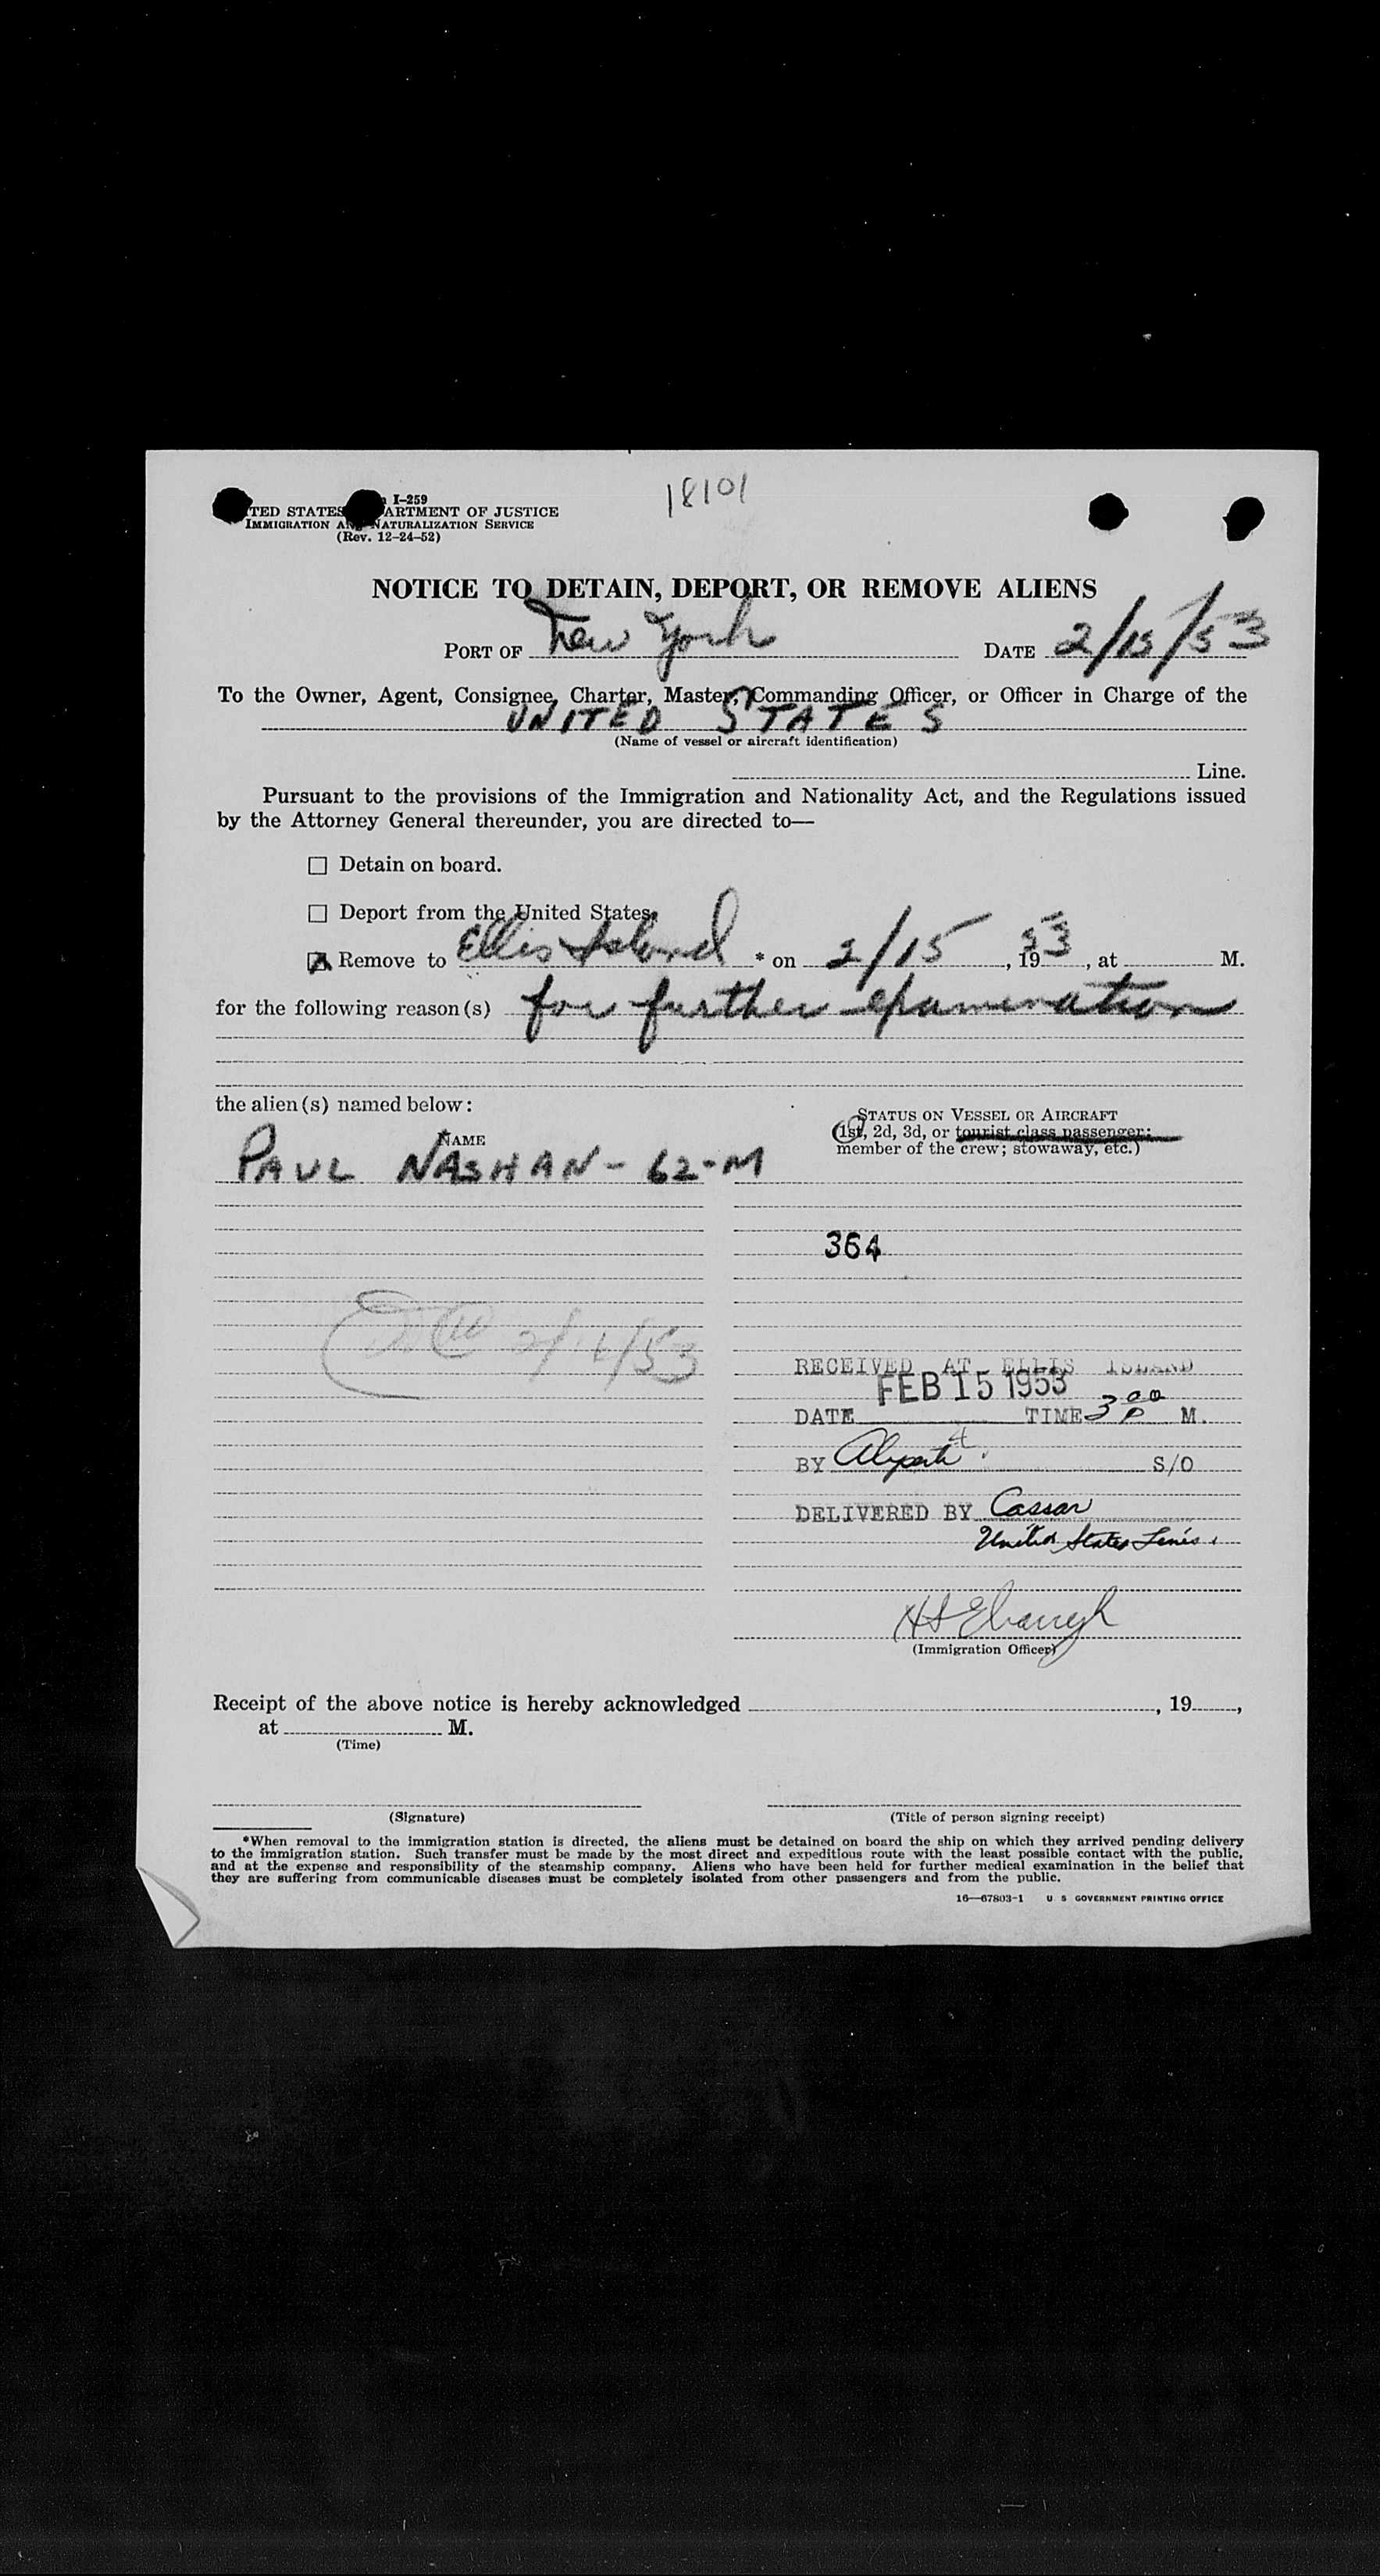 18101
I-259
TED STATES ARTMENT OF JUSTICE
IMMIGRATION AN NATURALIZATION SERVICE
(Rev. 12-24-52)
NOTICE TO DETAIN, DEPORT, OR REMOVE ALIENS
PORT OF New York DATE 2/15/53
To the Owner, Agent, Consignee, Charter, Master, Commanding Officer, or Officer in Charge of the
UNITED STATES
(Name of vessel or aircraft identification)
Line.
Pursuant to the provisions of the Immigration and Nationality Act, and the Regulations issued
by the Attorney General thereunder, you are directed to—
Detain on board.
Deport from the United States.
Remove to Ellis Island * on 2/15, 1953, at M.
for the following reason(s) for further examination
the alien(s) named below:
NAME
STATUS ON VESSEL OR AIRCRAFT
(1st, 2d, 3d, or tourist class passenger;
member of the crew; stowaway, etc.)
PAUL NASHAN - 62-M
364
2/16/53
RECEIVED AT ELLIS ISLAND
FEB 15 1953
DATE TIME 3 00 P M.
BY S/O
DELIVERED BY Cassar
United States Lines.
(Immigration Officer)
Receipt of the above notice is hereby acknowledged , 19 ,
at M.
(Time)
(Signature)
(Title of person signing receipt)
*When removal to the immigration station is directed, the aliens must be detained on board the ship on which they arrived pending delivery
to the immigration station. Such transfer must be made by the most direct and expeditious route with the least possible contact with the public,
and at the expense and responsibility of the steamship company. Aliens who have been held for further medical examination in the belief that
they are suffering from communicable diseases must be completely isolated from other passengers and from the public.
16—67803-1 U S GOVERNMENT PRINTING OFFICE